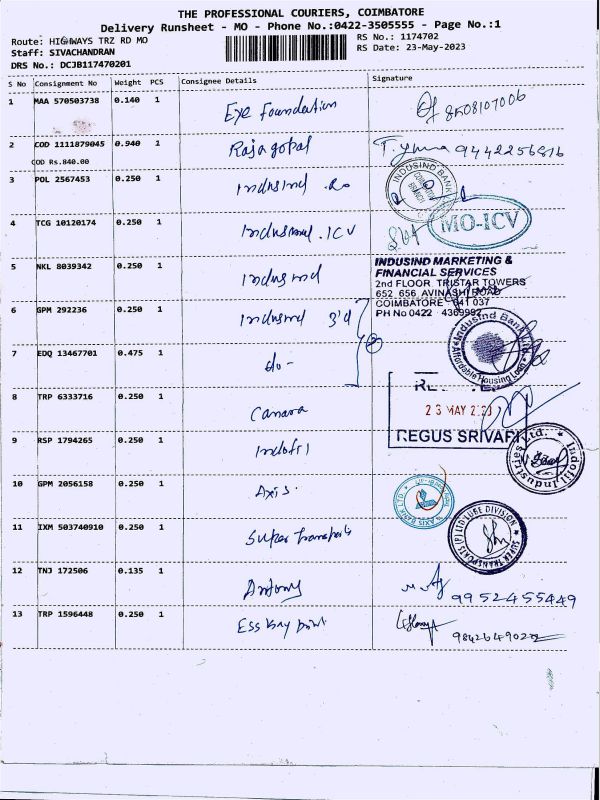 THE PROFESSIONAL COURIERS, COIMBATORE
Delivery Runsheet - MO - Phone No.:0422-3505555 - Page No.:1
Route: HIGHWAYS TRZ RD MO
RS No.: 1174702
Staff: SIVACHANDRAN
RS Date: 23-May-2023
DRS No.: DCJB117470201
S No Consignment No Weight PCS Consignee Details Signature
1 MAA 570503738 0.140 1 Eye Foundation 8508107006
2 COD 1111879045 0.940 1 Rajagopal 9442256816
COD Rs.840.00
3 POL 2567453 0.250 1 Indusind
INDUSIND BANK
4 TCG 10120174 0.250 1 Indusind .ICV
MO-ICV
5 NKL 8039342 0.250 1 Indusind
INDUSIND MARKETING &
FINANCIAL SERVICES
2nd FLOOR TRISTAR TOWERS
652 656 AVINASHI ROAD
COIMBATORE 641 037
PH No 0422
6 GPM 292236 0.250 1 Indusind 3'd
Indusind Bank Ltd.
Affordable Housing Loan
7 EDQ 13467701 0.475 1 do-
8 TRP 6333716 0.250 1 Canara
23 MAY 2023
REGUS SRIVARI
9 RSP 1794265 0.250 1 Indofil
Indofil Industries Ltd.
10 GPM 2056158 0.250 1 Axis.
AXIS BANK LTD
11 IXM 503740910 0.250 1 Super Transports
SUPER TRANSPORTS (P) LTD-LUBE DIVISION
12 TNJ 172506 0.135 1 Antony 9952455449
13 TRP 1596448 0.250 1 Ess Bay Point